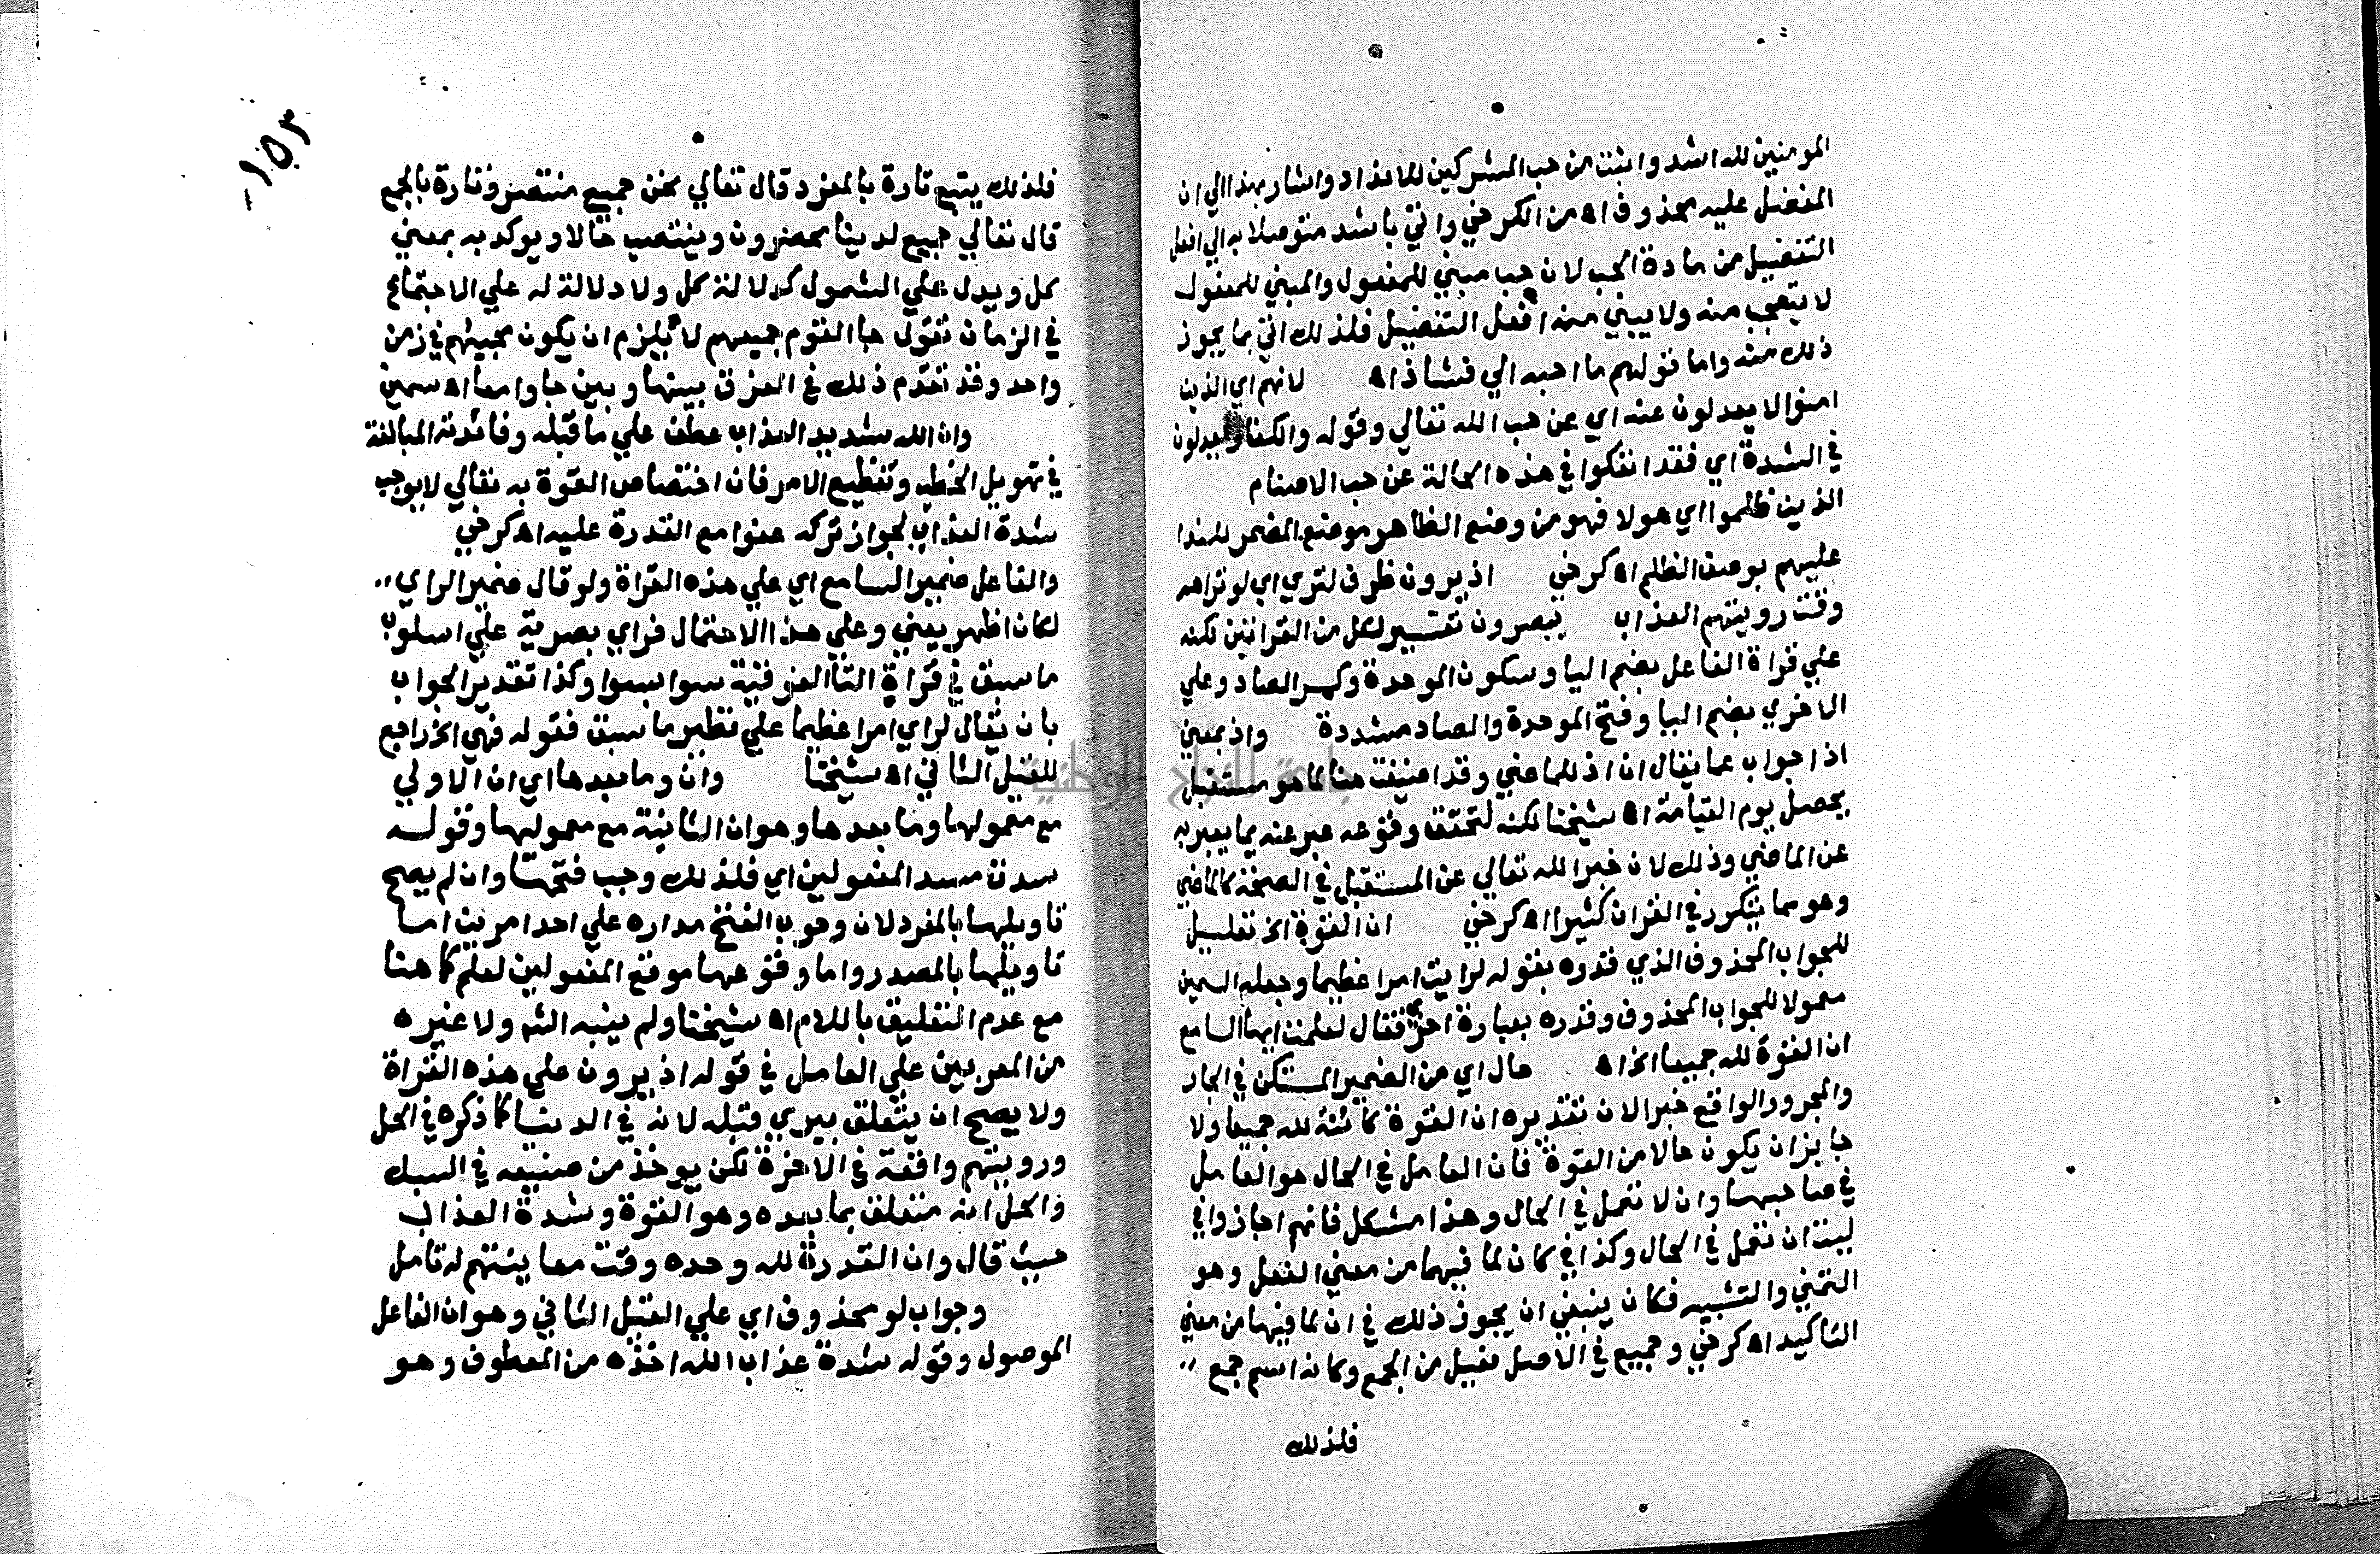 المومنين لله اشد واثبت من حب المشركين للانداد واشار بهذا الي ان
المفضل عليه محذوف اه من الكرخي واتي باشد متوصلا به الي افعل
التفضيل من مادة الحب لان حب مبني للمفعول والمبني للمفعول
لا يتعجب منه ولا يبني منه افعل التفضيل فلذلك اتي بما يجوز
ذلك منه واما قولهم ما احبه الي فشاذ اه لانهم اي الذين
امنوا لا يعدلون عنه اي عن حب الله تعالي وقوله والكفار يعدلون
في الشدة اي فقد انفكوا في هذه الحالة عن حب الاصنام
الذين ظلموا اي هولا فهو من وضع الظاهر موضع المضمر للندا
عليهم بوصف الظلم اه كرخي اذ يرون ظرف لتري اي لو تراهم
وقت رويتهم العذاب يبصرون تفسير لكل من القراتين لكنه
علي قراة الفاعل بضم اليا وسكون الموحدة وكسر الصاد وعلي
الاخري بضم اليا وفتح الموحدة والصاد مشددة واذ بمعني
اذا جواب عما يقال ان اذ للماضي وقد اضيفت هنا لما هو مستقبل
يحصل يوم القيامة اه شيخنا لكنه لتحقق وقوعه عبر عنه بما يعبر به
عن الماضي وذلك لان خبر الله تعالي عن المستقبل في الصحة كالماضي
وهو مما يتكرر في القران كثيرا اه كرخي ان القوة الخ تعليل
للجواب المحذوف الذي قدره بقوله لرايت امرا عظيما وجعله السمين
معمولا للجواب المحذوف وقدره بعبارة اخري فقال لعلمت ايها السامع
ان القوة لله جميعا الخ اه حال اي من الضمير المستكن في الجار
والمجرور الواقع خبرا لان تقديره ان القوة كائنة لله جميعا ولا
جايز ان يكون حالا من القوة فان العامل في الحال هو العامل
في صاحبها وان لا تعمل في الحال وهذا مشكل فانهم اجازوا في
ليت ان تعمل في الحال وكذا في كان لما فيهما من معني الفعل وهو
التمني والتشبيه فكان ينبغي ان يجوز ذلك في ان لما فيها من معني
التاكيد اه كرخي وجميع في الاصل فعيل من الجمع وكانه اسم جمع
فلذلك
١٥٣
فلذلك يتبع تارة بالمفرد قال تعالي نحن جميع منتصر وتارة بالجمع
قال تعالي جميع لدينا محضرون وينتصب حالا ويوكد به بمعني
كل ويدل علي الشمول كدلالة كل ولا دلالة له علي الاجتماع
في الزمان تقول جا القوم جميعهم لا يلزم ان يكون مجيئهم في زمن
واحد وقد تقدم ذلك في الفرق بينها وبين جاوا معا اه سمين
وان الله شديد العذاب عطف علي ما قبله وفائدته المبالغة
في تهويل الخطب وتفظيع الامر فان اختصاص القوة به تعالي لا يوجب
شدة العذاب لجواز تركه عفوا مع القدرة عليه اه كرخي
والفاعل ضمير السامع اي علي هذه القراة ولو قال ضمير الراي
لكان اظهر يعني وعلي هذا الاحتمال فراي بصرية علي اسلوب
ما سبق في قراة التا الفوقية سوا بسوا وكذا تقدير الجواب
بان يقال لراي امرا عظيما علي نظير ما سبق فقوله فهي الخ راجع
للقيل الثاني اه شيخنا وان وما بعدها اي ان الاولي
مع معمولها وما بعدها وهو ان الثانية مع معموليها وقوله
سدت مسد المفعولين اي فلذلك وجب فتحها وان لم يصح
تاويلها بالمفرد لان وجوب الفتح مداره علي احد امرين اما
تاويلها بالمصدر واما وقوعها موقع المفعولين لعلم كما هنا
مع عدم التعليق باللام اه شيخنا ولم ينبه الشم ولا غيره
من المعربين علي العامل في قوله اذ يرون علي هذه القراة
ولا يصح ان يتعلق بيري قبله لانه في الدنيا كما ذكره في الحل
ورويتهم واقعة في الاخرة لكن يوخذ من صنيعه في السبك
والحل انه متعلق بما بعده وهو القوة وشدة العذاب
حيث قال وان القدرة لله وحده وقت معاينتهم له تامل
وجواب لو محذوف اي علي القيل الثاني وهو ان الفاعل
الموصول وقوله شدة عذاب الله اخذه من المعطوف وهو
جامعة النجاح الوطنية